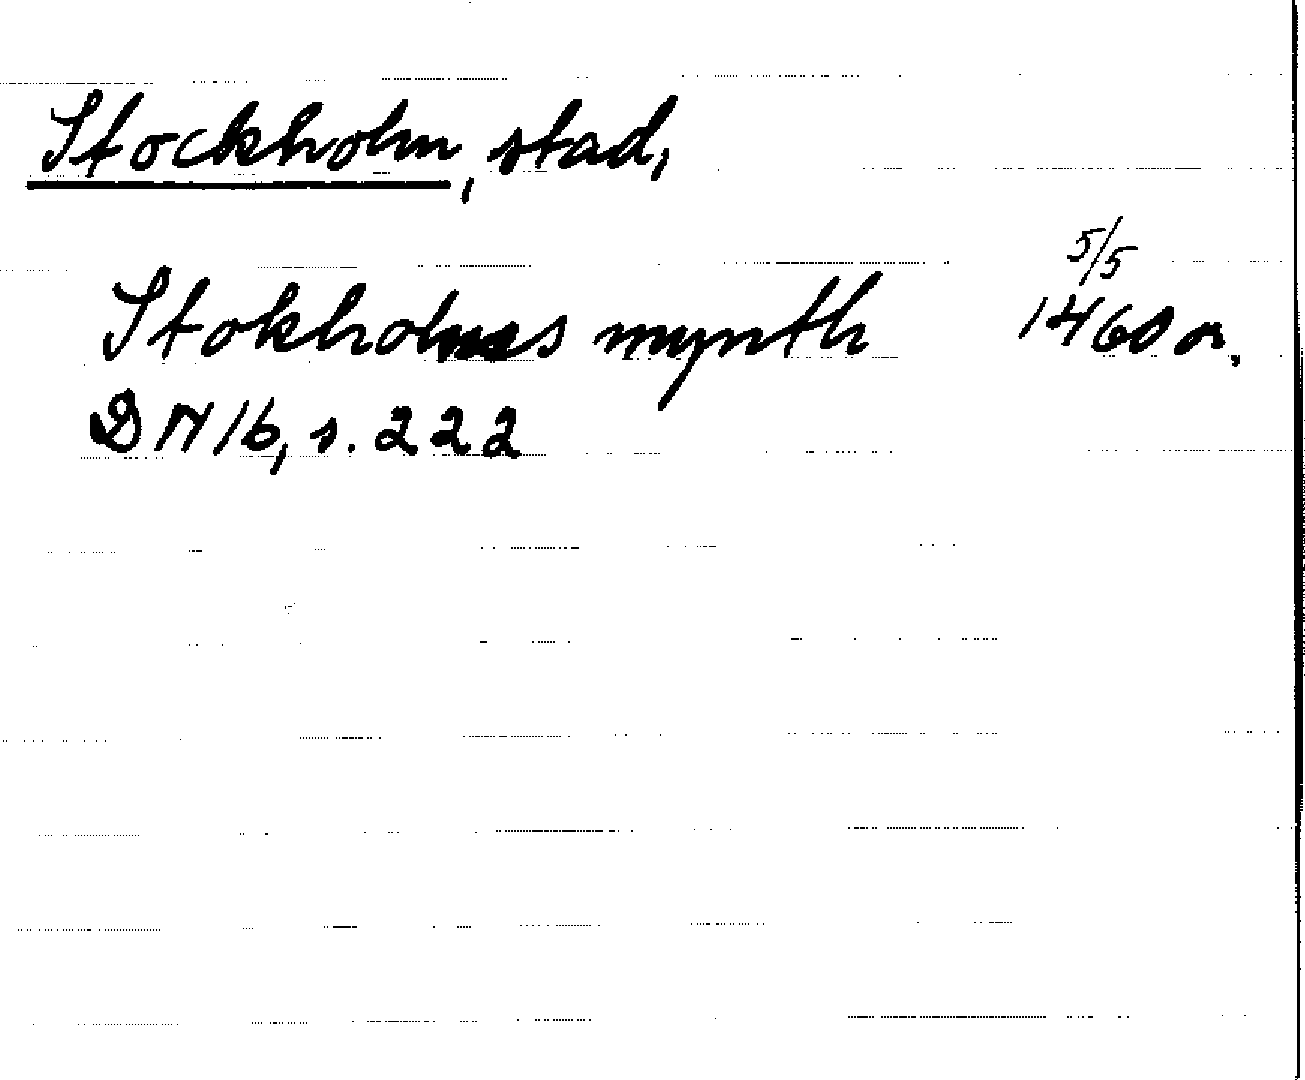 Stockholm, stad,
5/5
Stokholms mynth 1460 or.
DN 16, s. 222